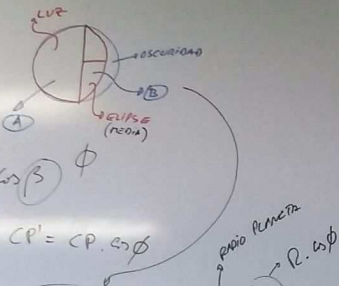 LUZ
OSCURIDAD
A
B
ELIPSE
(MEDIA)
cos β
ϕ
CP' = CP . cos ϕ
RADIO PLANETA
R. cos ϕ